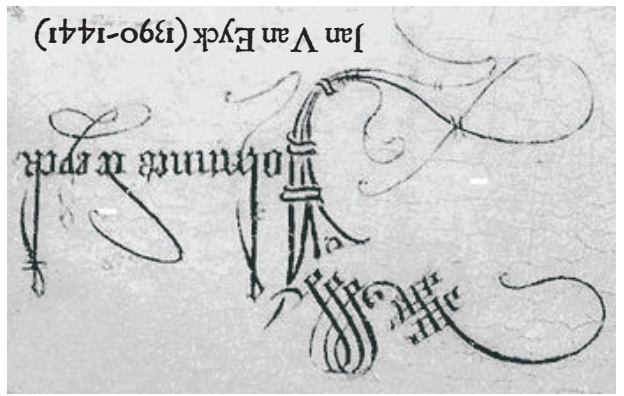 Johannes de eyck
Jan Van Eyck (1390-1441)